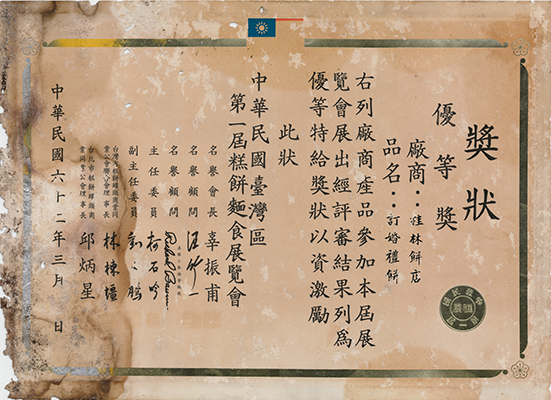 獎狀
優等獎
廠商：桂林餅店
品名：訂婚禮餅
右列廠商產品參加本屆展
覽會展出經評審結果列為
優等特給獎狀以資激勵
此狀
中華民國臺灣區
第一屆糕餅麵食展覽會
名譽會長 辜振甫
名譽顧問
名譽顧問
主任委員
副主任委員
業公會聯合會理事長
台北市糕餅罐頭商
業同業公會理事長 邱炳星
中華民國六十二年三月 日